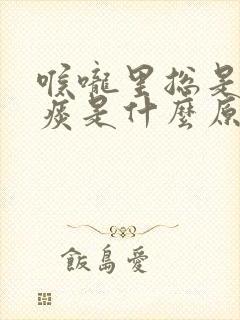 喉嚨里總是
痰是什麼原
飯島愛